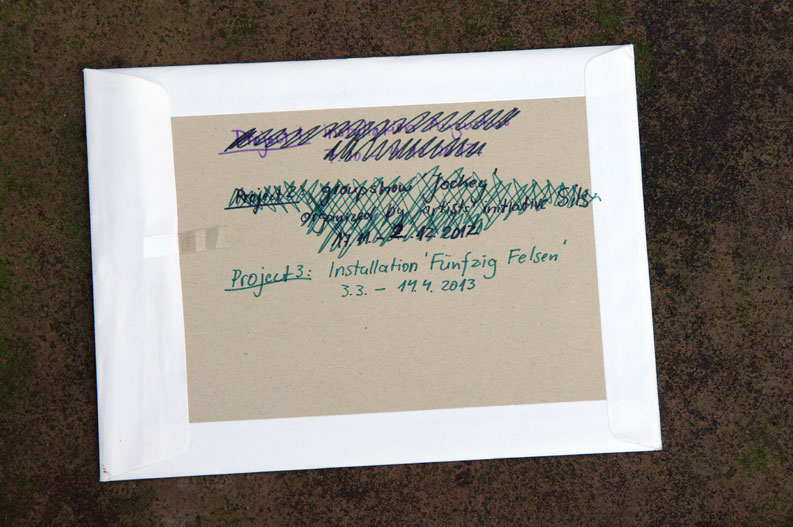 Project 2: groupshow 'Jockey'
organized by artist initiative SILS
17.11. – 2.12.2012
Project 3: Installation 'Fünfzig Felsen'
3.3. – 14.4. 2013